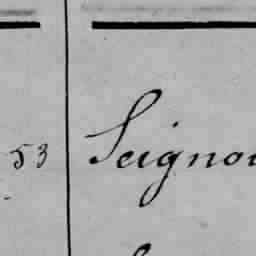 53 Seignou